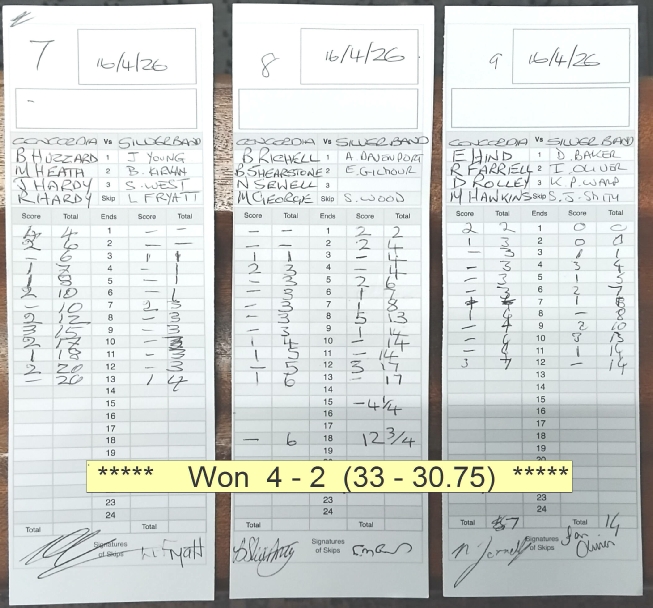 7
16/4/26
CONCORDIA Vs SILVERBAND
B HUZZARD 1 J YOUNG
M HEATH 2 B. KIRWN
J HARDY 3 S. WEST
R HARDY Skip L FRYATT
Score Total Ends Score Total
4 4 1 – –
2 6 2 – –
– 6 3 1 1
1 7 4 – 1
1 8 5 – 1
2 10 6 – 1
– 10 7 2 3
2 12 8 – 3
3 15 9 – 3
2 17 10 – 3
1 18 11 – 3
2 20 12 – 3
– 20 13 1 4
14
15
16
17
18
19
23
24
Total Total
Signatures of Skips
L. Fryatt
8
16/4/26
CONCORDIA Vs SILVERBAND
B RICHELL 1 A DAVENPORT
B SHEARSTONE 2 E. GILMOUR
N SEWELL 3
M GEORGE Skip S. WOOD
Score Total Ends Score Total
– – 1 2 2
– – 2 2 4
1 1 3 – 4
2 3 4 – 4
– 3 5 2 6
– 3 6 1 7
– 3 7 1 8
– 3 8 5 13
– 3 9 1 14
1 4 10 – 14
1 5 11 – 14
– 5 12 3 17
1 6 13 – 17
14
15 – 4 1/4
16
17
– 6 18 12 3/4
19
23
24
Total Total
Signatures of Skips
9
16/4/26
CONCORDIA Vs SILVERBAND
E HIND 1 D. BAKER
R FARRIELL 2 I. OLIVER
D ROLLEY 3 K P. WALD
M HAWKINS Skip S. J. SMITH
Score Total Ends Score Total
2 2 1 0 0
1 3 2 0 0
– 3 3 1 1
– 3 4 3 4
– 3 5 1 5
– 3 6 2 7
7 1 8
1 4 8 – 8
– 4 9 2 10
– 4 10 3 13
– 4 11 1 14
3 7 12 – 14
13
14
15
16
17
18
19
***** Won 4 - 2 (33 - 30.75) *****
23
24
Total 7 Total 14
Signatures of Skips
Ian Oliver